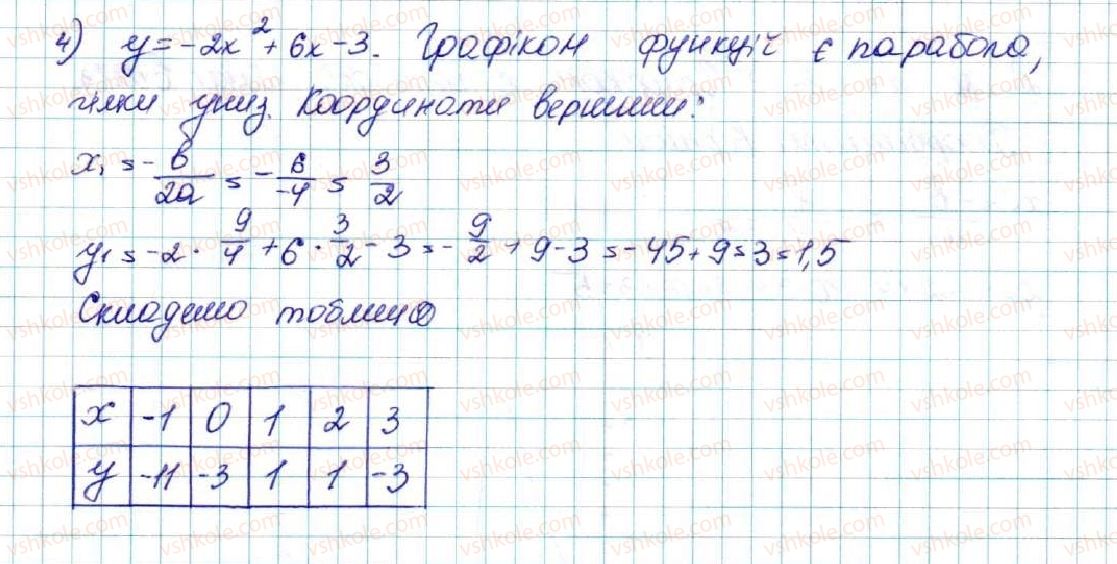 4) y = -2x² + 6x - 3. Графіком функції є парабола,
гілки униз. Координати вершини:
x₁ = -b/2a = -6/-4 = 3/2
y₁ = -2 · 9/4 + 6 · 3/2 - 3 = -9/2 + 9 - 3 = -45 + 9 = 3 = 1,5
Складемо таблицю
x -1 0 1 2 3
y -11 -3 1 1 -3